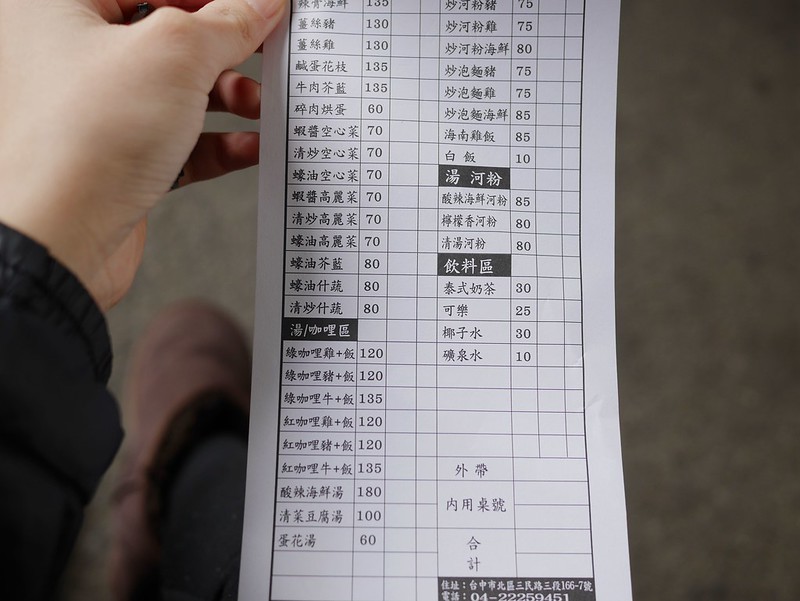 辣膏海鮮 135
薑絲豬 130
薑絲雞 130
鹹蛋花枝 135
牛肉芥藍 135
碎肉烘蛋 60
蝦醬空心菜 70
清炒空心菜 70
蠔油空心菜 70
蝦醬高麗菜 70
清炒高麗菜 70
蠔油高麗菜 70
蠔油芥藍 80
蠔油什蔬 80
清炒什蔬 80
湯/咖哩區
綠咖哩雞+飯 120
綠咖哩豬+飯 120
綠咖哩牛+飯 135
紅咖哩雞+飯 120
紅咖哩豬+飯 120
紅咖哩牛+飯 135
酸辣海鮮湯 180
清菜豆腐湯 100
蛋花湯 60
炒河粉豬 75
炒河粉雞 75
炒河粉海鮮 80
炒泡麵豬 75
炒泡麵雞 75
炒泡麵海鮮 85
海南雞飯 85
白飯 10
湯 河粉
酸辣海鮮河粉 85
檸檬香河粉 80
清湯河粉 80
飲料區
泰式奶茶 30
可樂 25
椰子水 30
礦泉水 10
外帶
內用桌號
合
計
住址：台中市北區三民路三段166-7號
電話：04-22259451